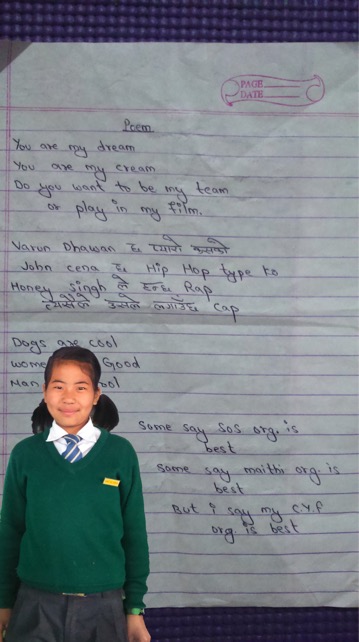 PAGE
DATE
Poem
You are my dream
You are my cream
Do you want to be my team
or play in my film.
Varun Dhawan छ प्यारो कसको
John cena छ Hip Hop type ko
Honey Singh ले हन्छ Rap
त्यसैले उसले लगाउँछ Cap
Dogs are cool
Good
Man
Some say SOS org. is
best
Some say maithi org. is
best
But i say my C.Y.F
org. is best